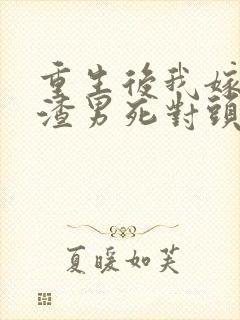 重生後我嫁
渣男死對頭
夏暖如芙